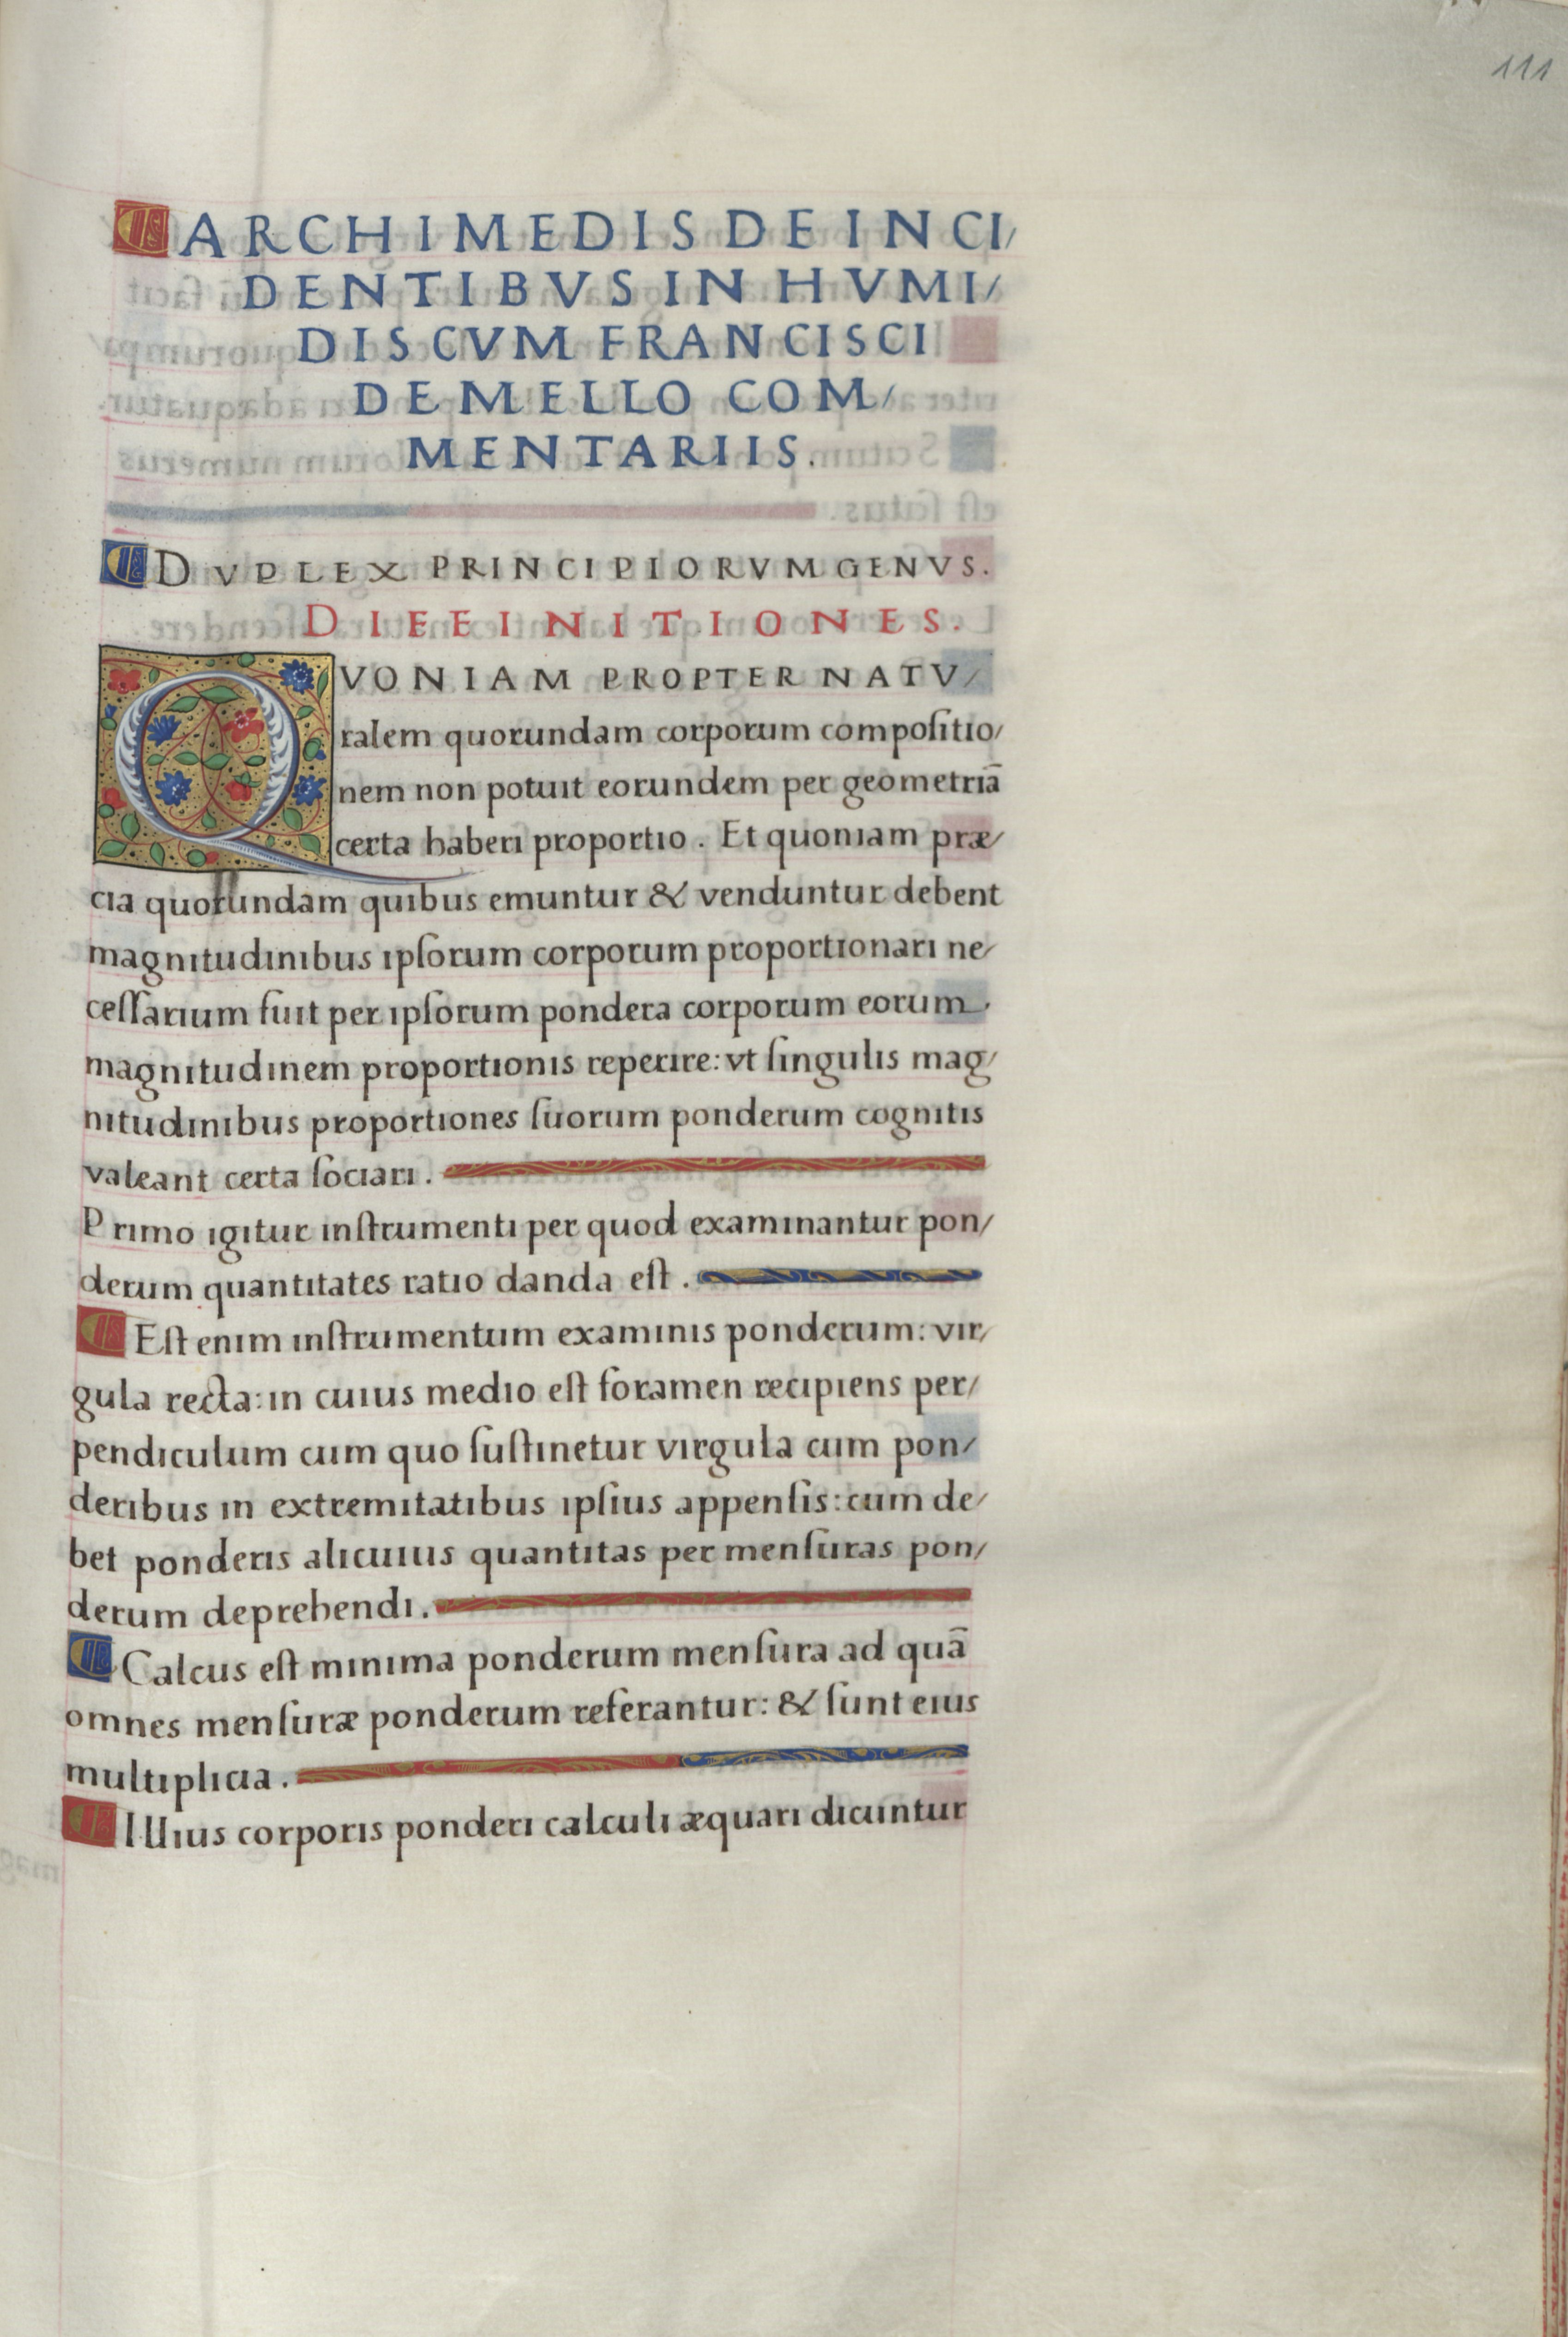 111
ARCHIMEDIS DE INCI/
DENTIBVS IN HVMI/
DIS CVM FRANCISCI
DE MELLO COM/
MENTARIIS.
DVPLEX PRINCIPIORVM GENVS.
DIFFINITIONES.
QVONIAM PROPTER NATV/
ralem quorundam corporum compoſitio/
nem non potuit eorundem per geometriā
certa haberi proportio. Et quoniam præ/
cia quorundam quibus emuntur & venduntur debent
magnitudinibus ipſorum corporum proportionari ne/
ceſſarium fuit per ipſorum pondera corporum eorum
magnitudinem proportionis reperire: vt ſingulis mag/
nitudinibus proportiones ſuorum ponderum cognitis
valeant certa ſociari.
Primo igitur inſtrumenti per quod examinantur pon/
derum quantitates ratio danda eſt.
Eſt enim inſtrumentum examinis ponderum: vir/
gula recta: in cuius medio eſt foramen recipiens per/
pendiculum cum quo ſuſtinetur virgula cum pon/
deribus in extremitatibus ipſius appenſis: cum de/
bet ponderis alicuius quantitas per menſuras pon/
derum deprehendi.
Calcus eſt minima ponderum menſura ad quā
omnes menſuræ ponderum referantur: & ſunt eius
multiplicia.
Illius corporis ponderi calculi æquari dicuntur